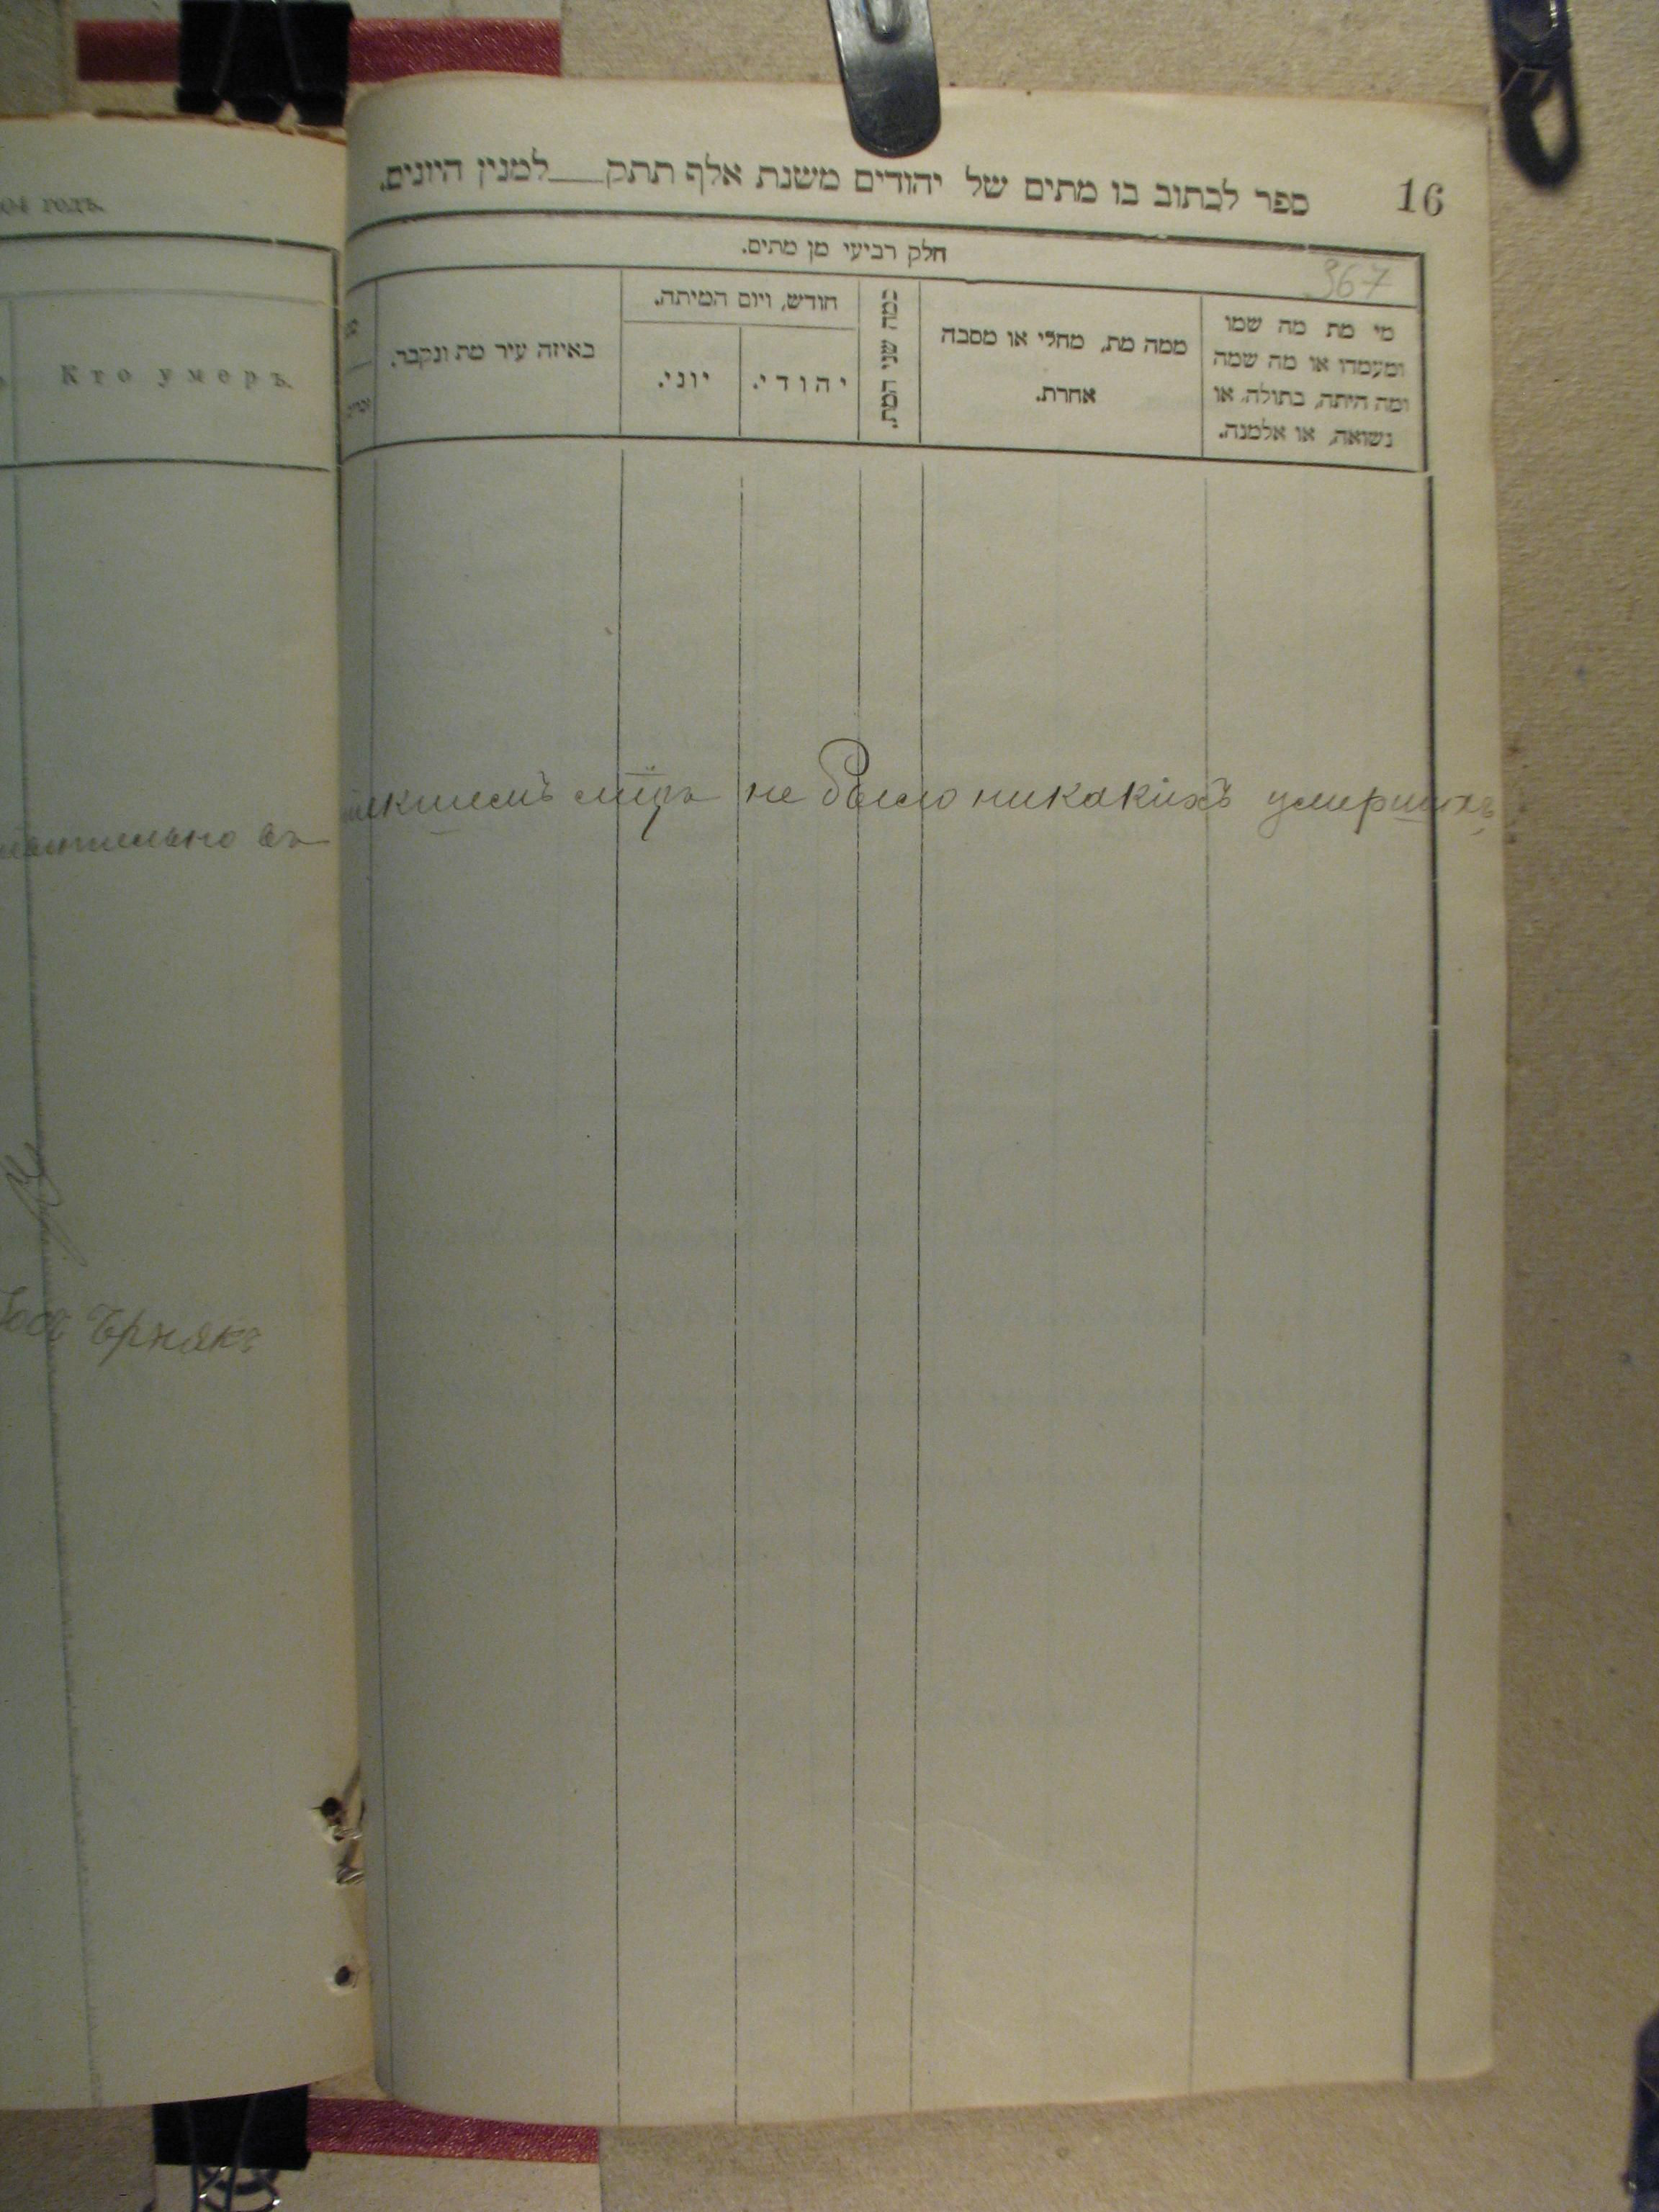 04 годъ.
Кто умеръ.
чательно въ
Чернякъ
ספר לכתוב בו מתים של יהודים משנת אלף תתק___למנין היונים.
16
חלק רביעי מן מתים.
367
מי מת מה שמו
ומעמדו או מה שמה
ומה היתה, בתולה, או
נשואה, או אלמנה.
ממה מת, מחלי או מסבה
אחרת.
כמה שני המת.
חודש, ויום המיתה.
יהודי.
יוני.
באיזה עיר מת ונקבר.
не было никакихъ умершихъ